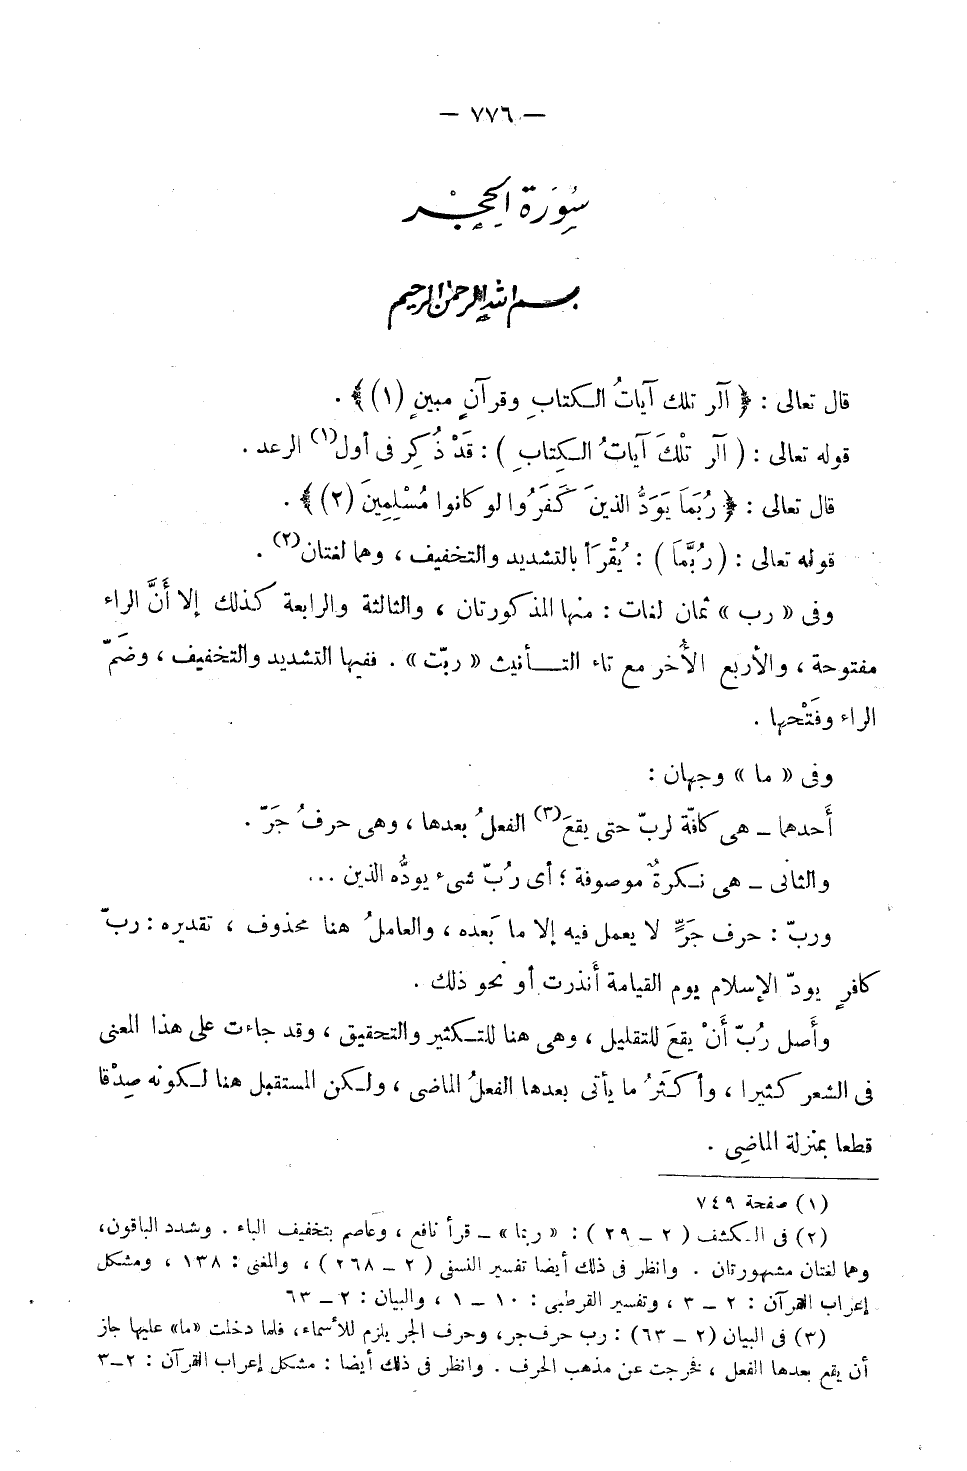 — ٧٧٦ —
سُورَة الحِجْر
بسم الله الرحمن الرحيم
قال تعالى : ﴿ آلر تلك آياتُ الكتابِ وقرآنٍ مبينٍ (١) ﴾ .
قوله تعالى : ( آلر تلْكَ آيَاتُ الكِتابِ ) : قَدْ ذُكِر فى أول(١) الرعد .
قال تعالى : ﴿ رُبَمَا يَوَدُّ الذينَ كَفَرُوا لو كانوا مُسْلِمِينَ (٢) ﴾ .
قوله تعالى : ( رُبَّمَا ) : يُقْرَأ بالتشديد والتخفيف ، وهما لغتان(٢) .
وفى « رب » ثمان لغات : منها المذكورتان ، والثالثة والرابعة كذلك إلا أَنَّ الراء
مفتوحة ، والأربع الأُخر مع تاء التأنيث « ربّت » . ففيها التشديد والتخفيف ، وضَمّ
الراء وفَتْحها .
وفى « ما » وجهان :
أَحدها ــ هى كافّة لربّ حتى يقعَ(٣) الفعلُ بعدها ، وهى حرفُ جَرّ .
والثانى ــ هى نكرةٌ موصوفة ؛ أى رُبّ شىء يودُّه الذين ...
وربّ : حرف جَرٍّ لا يعمل فيه إلا ما بَعده ، والعاملُ هنا محذوف ، تقديره : ربّ
كافرٍ يودّ الإسلام يوم القيامة أَنذرت أو نحو ذلك .
وأَصل رُبّ أَنْ يقعَ للتقليل ، وهى هنا للتكثير والتحقيق ، وقد جاءت على هذا المعنى
فى الشعر كثيرا ، وأكثَرُ ما يأتى بعدها الفعلُ الماضى ، ولكن المستقبل هنا لكونه صِدْقا
قطعا بمنزلة الماضِى .
(١) صفحة ٧٤٩
(٢) فى الكشف ( ٢ ــ ٢٩ ) : « ربما » ــ قرأ نافع ، وعاصم بتخفيف الباء . وشدد الباقون،
وهما لغتان مشهورتان . وانظر فى ذلك أيضا تفسير النسفى ( ٢ ــ ٢٦٨ ) ، والمغنى : ١٣٨ ، ومشكل
إعراب القرآن : ٢ ــ ٣ ، وتفسير القرطبى : ١٠ ــ ١ ، والبيان : ٢ ــ ٦٣
(٣) فى البيان (٢ ــ ٦٣) : رب حرف جر، وحرف الجر يلزم للأسماء، فلما دخلت «ما» عليها جاز
أن يقع بعدها الفعل ، فخرجت عن مذهب الحرف . وانظر فى ذلك أيضا : مشكل إعراب القرآن : ٢ــ٣